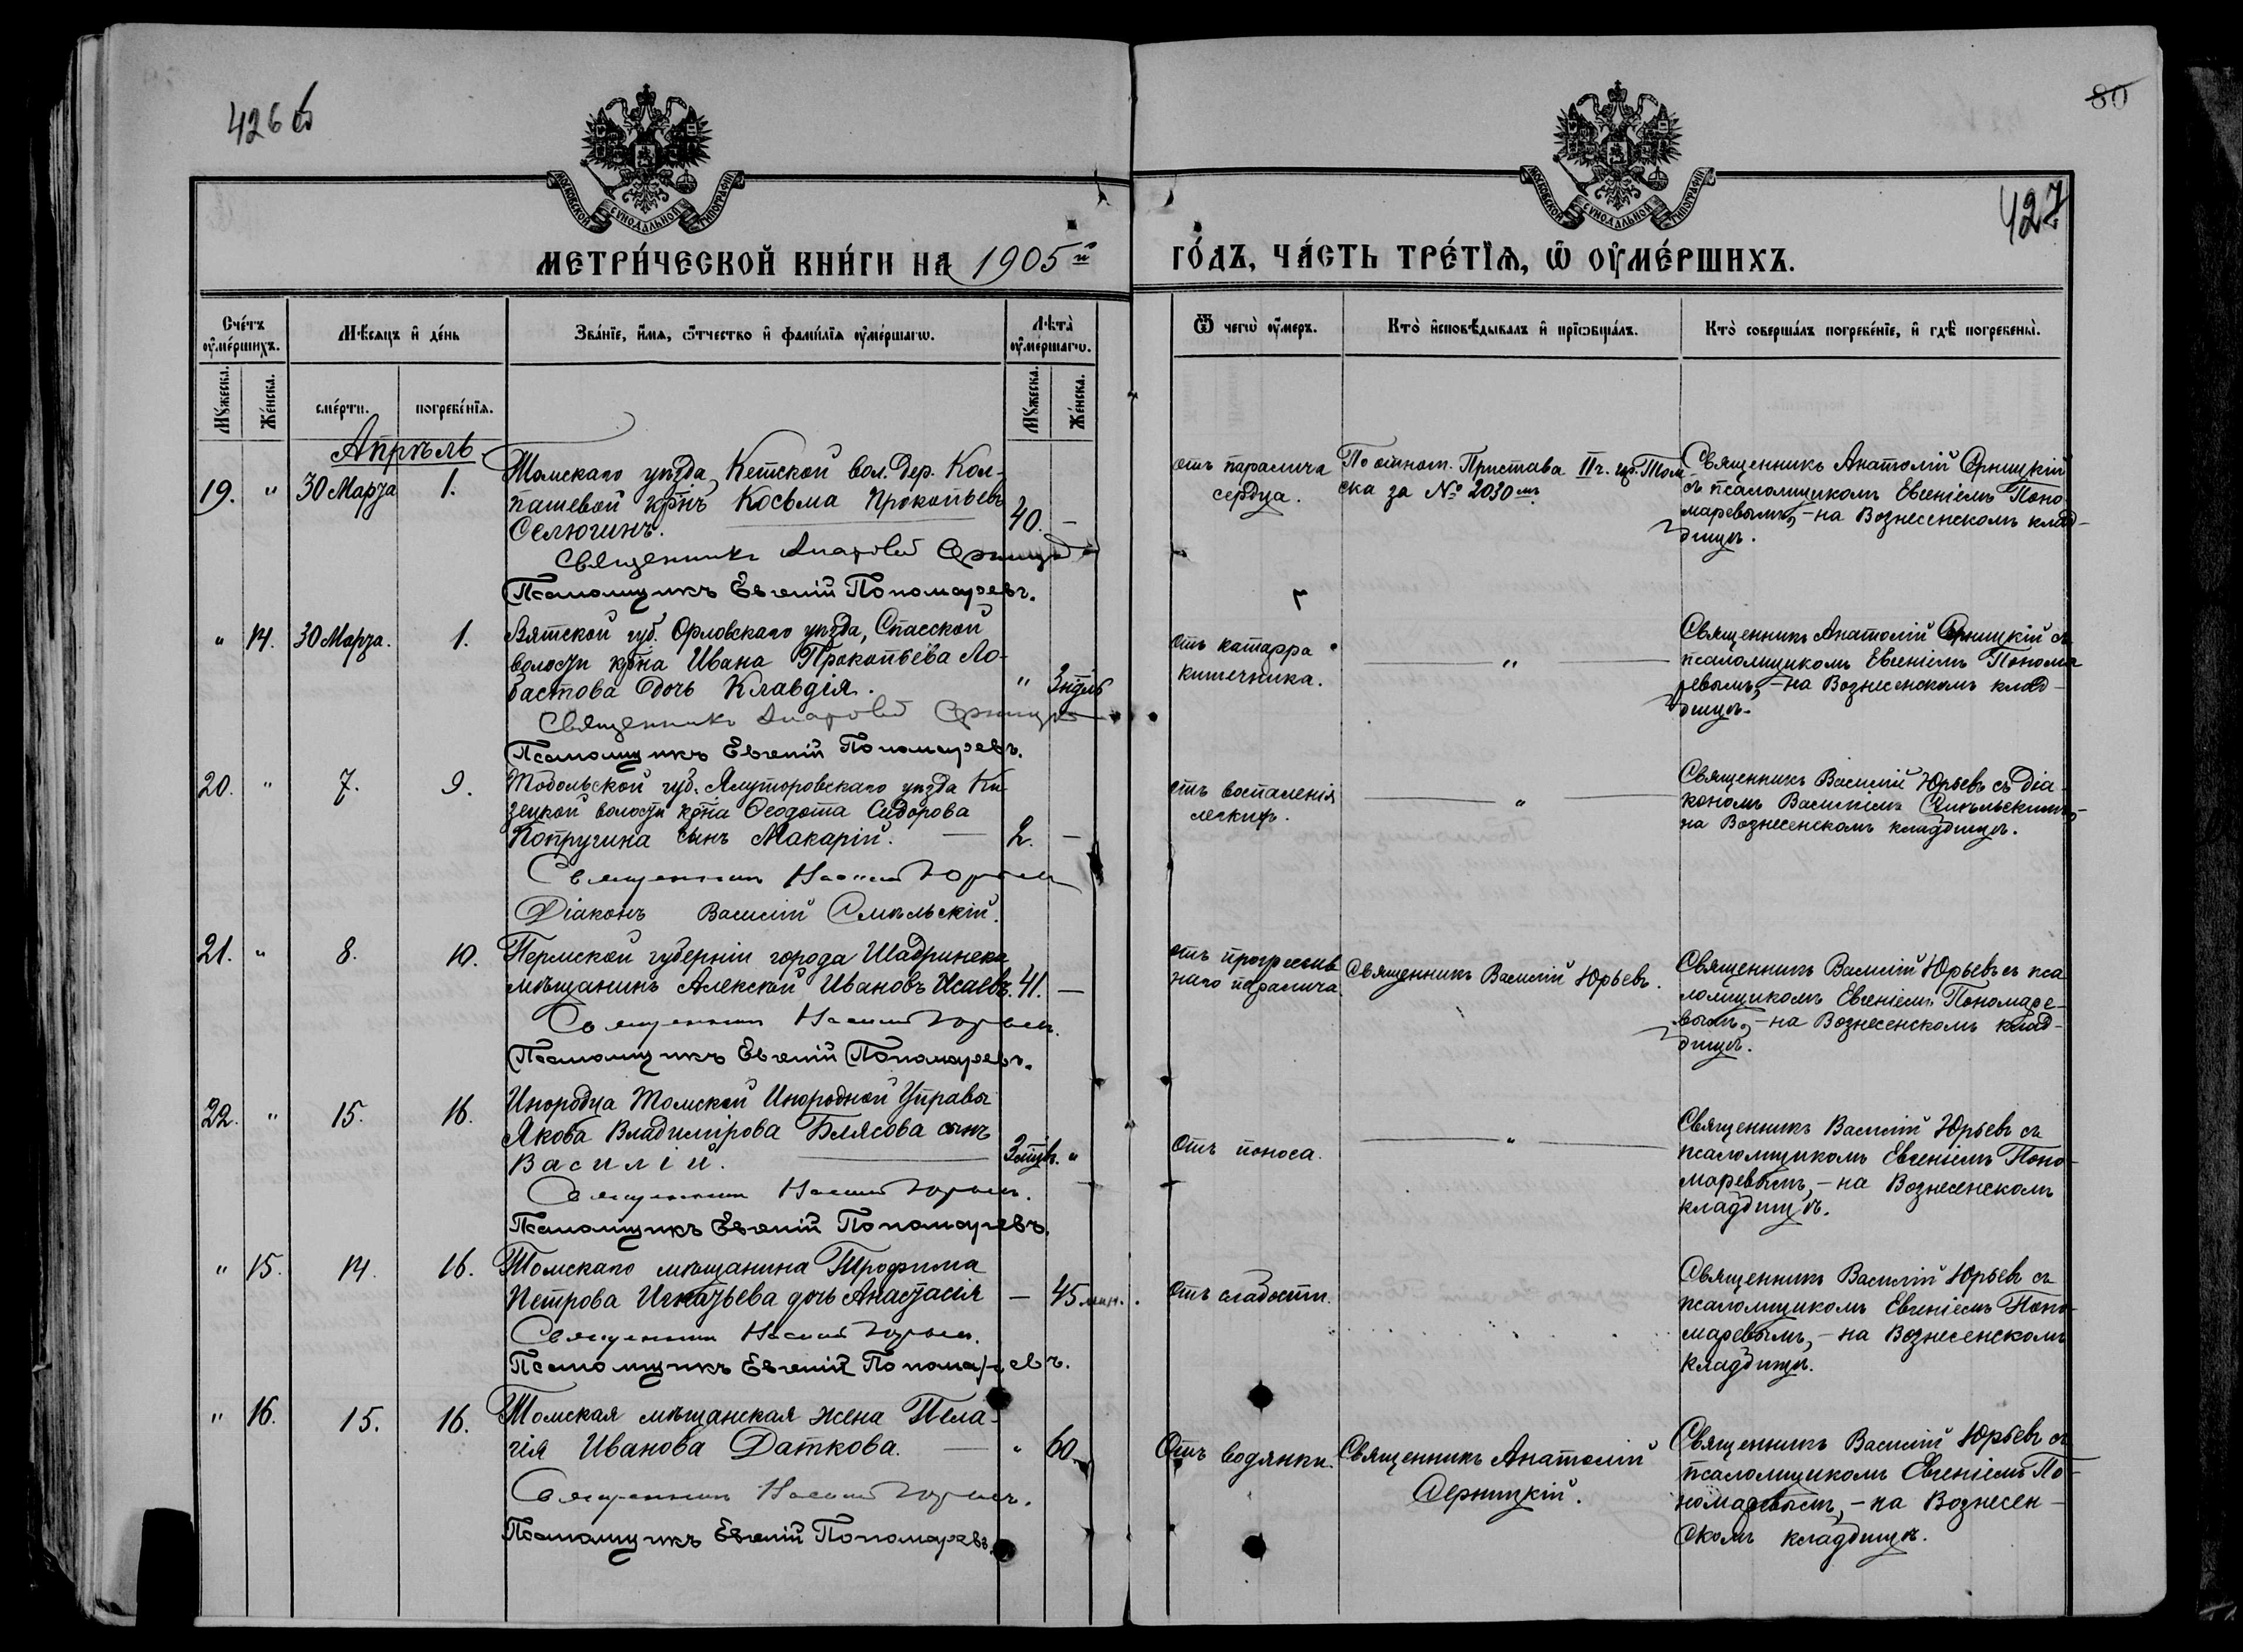 426 б
80
427
МОСКОВСКОЙ СУНОДАЛЬНОЙ ТИПОГРАФІИ
МОСКОВСКОЙ СУНОДАЛЬНОЙ ТИПОГРАФІИ
МЕТРИ́ЧЕСКОЙ КНИ́ГИ НА 1905й
ГО́ДЪ, ЧА́СТЬ ТРЕ́ТЇѦ, Ѡ҆ ОУ҆МЕ́РШИХЪ.
Сче́тъ оу҆ме́ршихъ.
Мѣ́сяцъ и҆ де́нь
Зва́нїе, и҆́мѧ, ѻ҆́тчество и҆ фами́лїѧ оу҆ме́ршагѡ.
Лѣ́та оу҆ме́ршагѡ.
Ѿ чегѡ̀ оу҆́меръ.
Кто̀ и҆сповѣ́дывалъ и҆ прїѡбща́лъ.
Кто̀ соверша́лъ погребе́нїе, и҆ гдѣ̀ погребены̀.
Мꙋ́жеска.
Же́нска.
сме́рти.
погребе́нїѧ.
Мꙋ́жеска.
Же́нска.
Апрѣль.
19. " 30 Марта 1.
Томскаго уѣзда, Кетской вол. дер. Кол-
пашевой крнъ Косьма Прокопьевъ
Селюгинъ. 40. —
Священникъ Анатолій
Псаломщикъ Евгеній Пономаревъ.
отъ паралича
сердца.
По отнош. Пристава II ч. гор. Том
ска за № 2030мъ
Священникъ Анатолій
съ псаломщикомъ Евгеніемъ Поно
маревымъ, – на Вознесенскомъ клад-
бищѣ.
" 14. 30 Марта. 1.
Вятской губ. Орловскаго уѣзда, Спасской
волости крна Ивана Прокопьева Ло-
бастова дочь Клавдія. " 3 нѣдѣл
Священникъ Анатолій
Псаломщикъ Евгеній Пономаревъ.
отъ катарра
кишечника.
"
Священникъ Анатолій съ
псаломщикомъ Евгеніемъ Понома
ревымъ, – на Вознесенскомъ клад-
бищѣ.
20. " 7. 9.
Тобольской губ. Ялуторовскаго уѣзда Ки-
зецкой волости крна Ѳеодота Сидорова
Попругина сынъ Макарій. — 2. —
Священникъ Василій Юрьевъ
Діаконъ Василій Смѣльскій.
отъ воспаленія
легкихъ.
"
Священникъ Василій Юрьевъ съ Діа-
кономъ Василіемъ Смѣльскимъ, –
на Вознесенскомъ кладбищѣ.
21. " 8. 10.
Пермской губерніи города Шадринска
мѣщанинъ Алексѣй Ивановъ Исаевъ. 41. —
Священникъ Василій Юрьевъ.
Псаломщикъ Евгеній Пономаревъ.
отъ прогрессив
наго паралича
Священникъ Василій Юрьевъ.
Священникъ Василій Юрьевъ съ пса
ломщикомъ Евгеніемъ Пономаре-
вымъ, – на Вознесенскомъ клад-
бищѣ.
22. " 15. 16.
Инородца Томской Инородной Управы
Якова Владимірова Блясова сынъ
Василій. "
Священникъ Василій Юрьевъ.
Псаломщикъ Евгеній Пономаревъ.
Отъ поноса.
"
Священникъ Василій Юрьевъ съ
псаломщикомъ Евгеніемъ Поно-
маревымъ, – на Вознесенскомъ
кладбищѣ.
" 15. 14. 16.
Томскаго мѣщанина Трофима
Петрова Игнатьева дочь Анастасія — 45 мин.
Священникъ Василій Юрьевъ.
Псаломщикъ Евгеній Пономаревъ.
Отъ слабости.
Священникъ Василій Юрьевъ съ
псаломщикомъ Евгеніемъ Поно-
маревымъ, – на Вознесенскомъ
кладбищѣ.
" 16. 15. 16.
Томская мѣщанская жена Пела-
гія Иванова Даткова. — " 60.
Священникъ Василій Юрьевъ.
Псаломщикъ Евгеній Пономаревъ.
Отъ водянки.
Священникъ Анатолій
Священникъ Василій Юрьевъ съ
псаломщикомъ Евгеніемъ По-
номаревымъ, – на Вознесен-
скомъ кладбищѣ.